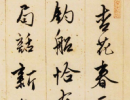 杏花春
釣船恰
局話新